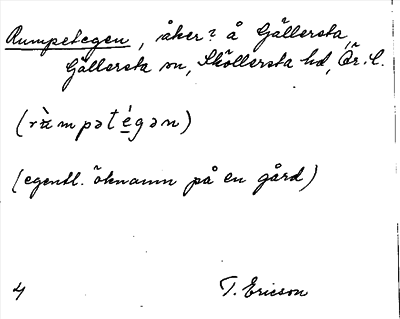 Rumpetegen, åker? å Gällersta,
Gällersta sn, Sköllersta hd, Ör. l.
(rù̵mpətégən)
(egentl. öknamn på en gård)
4 T. Ericson